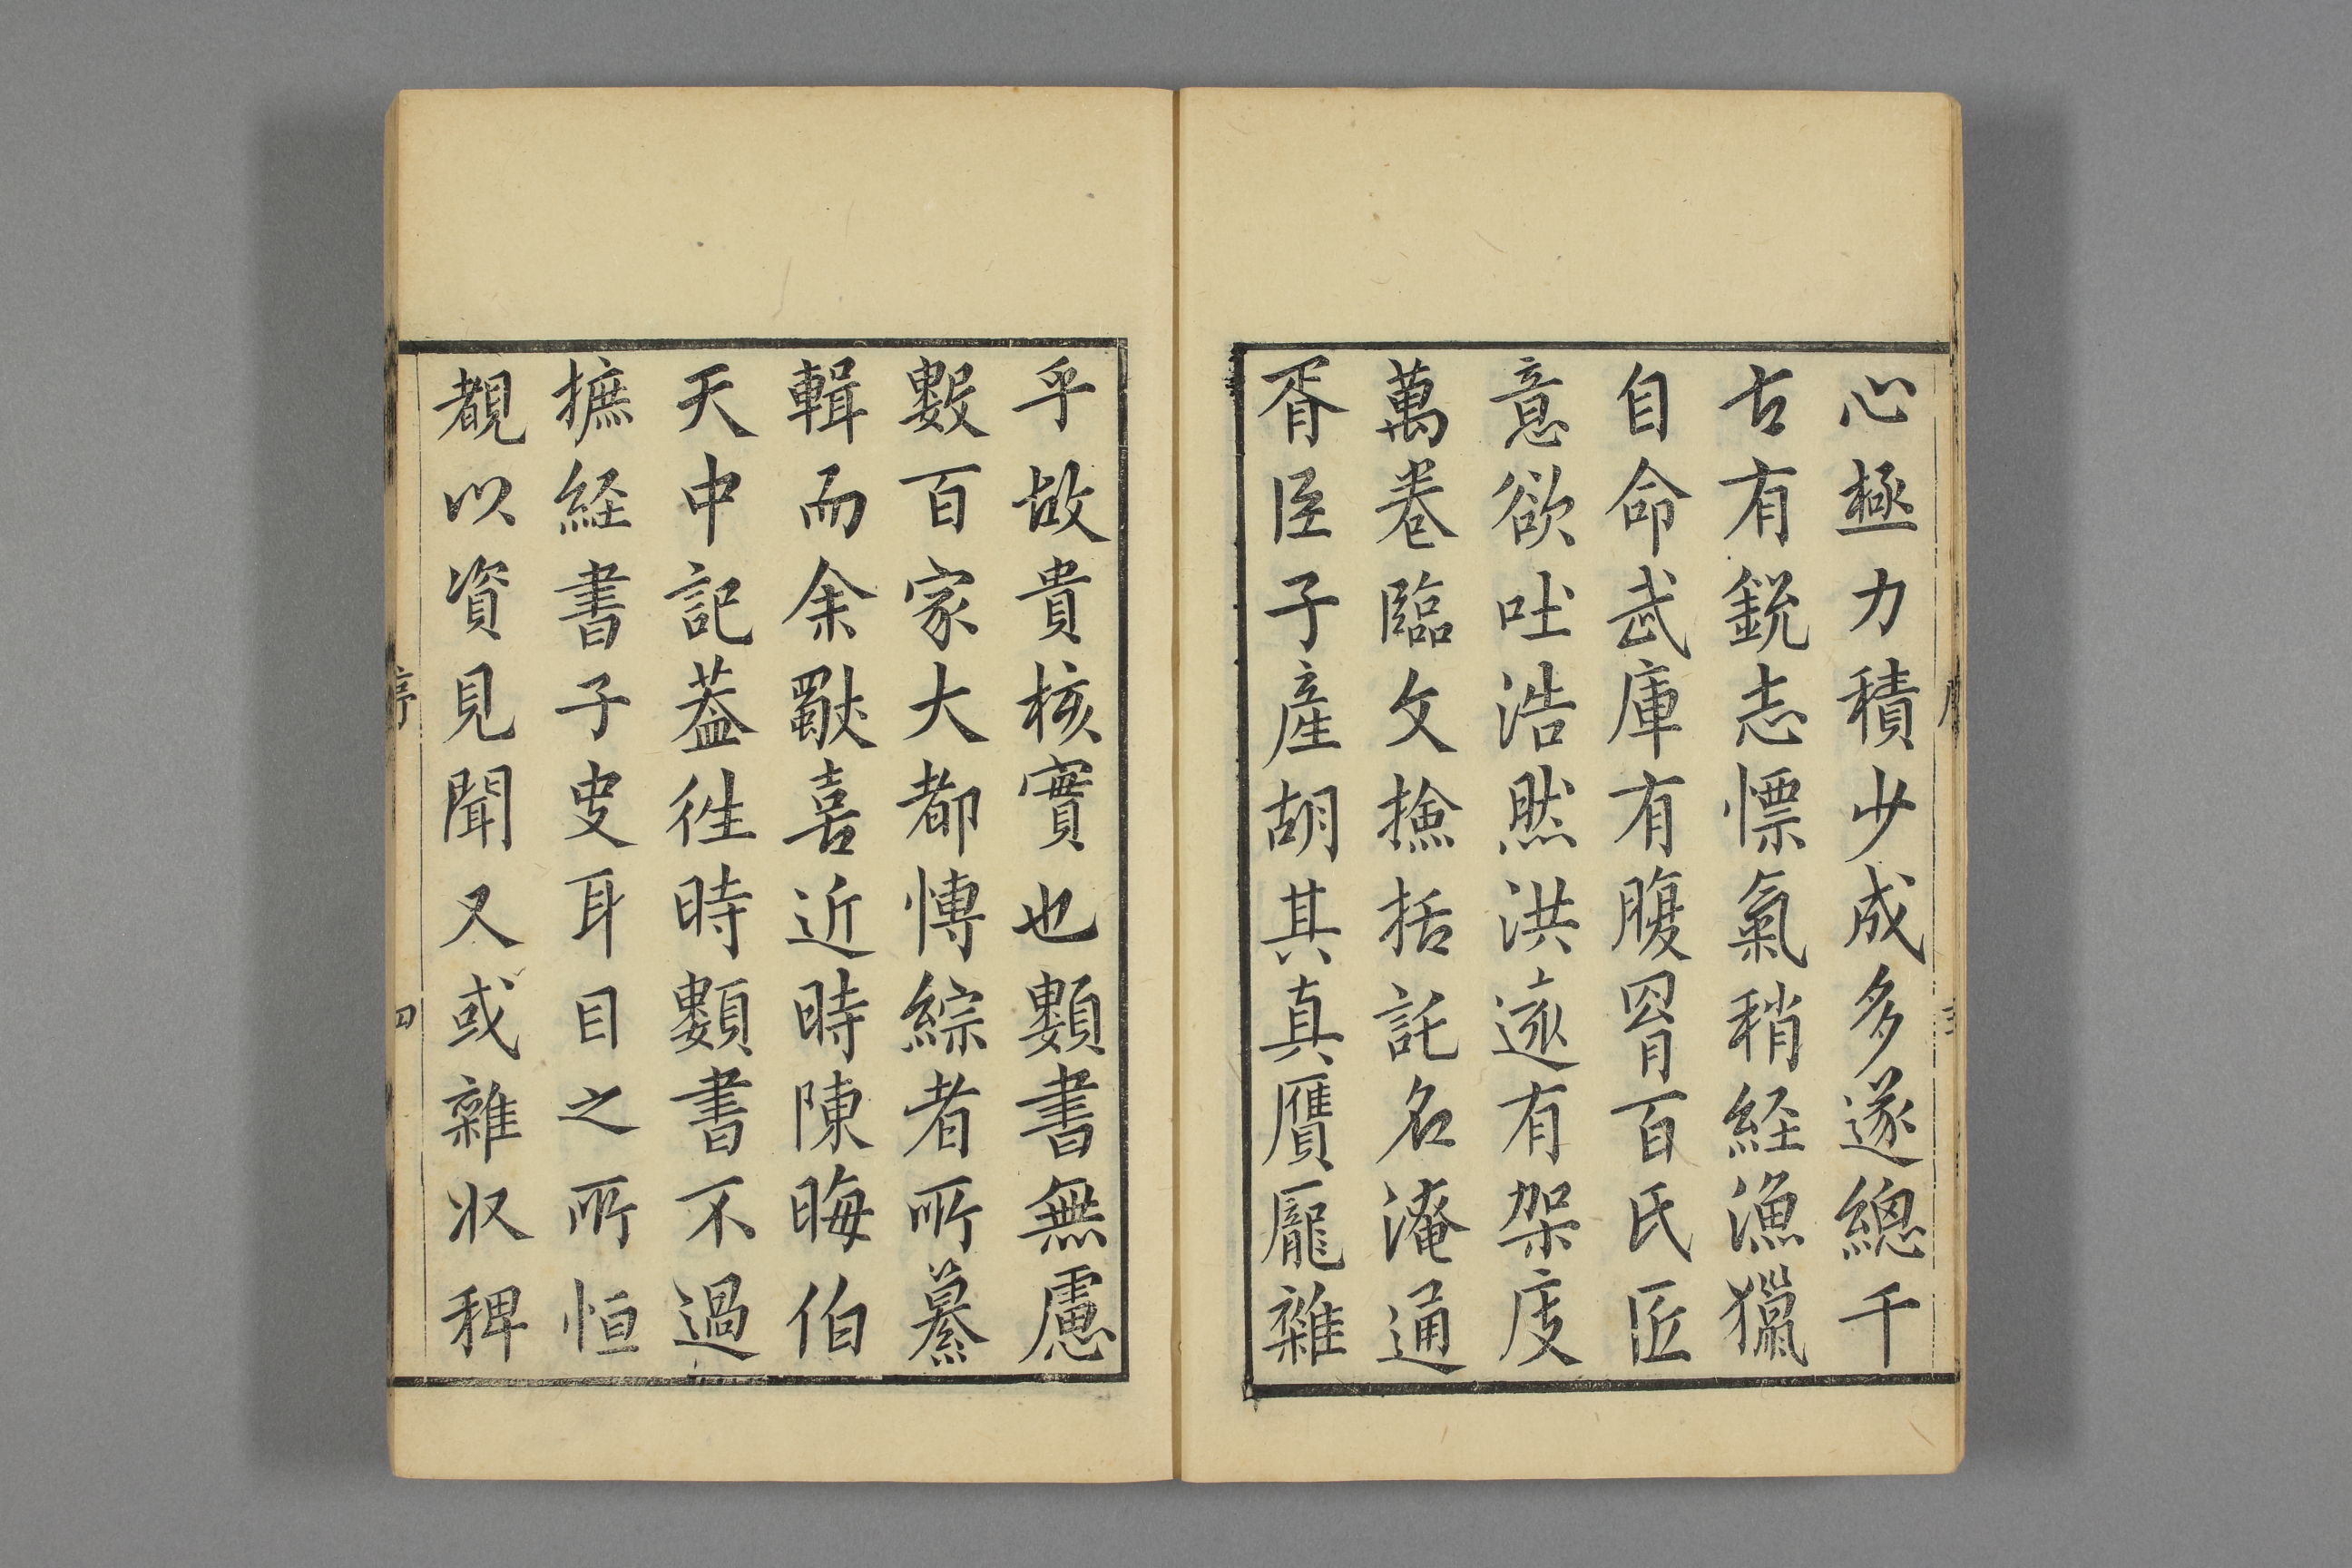 心極力積少成多遂總千
古有銳志慓氣稍経漁獵
自命武庫有腹胥百氏匠
意欲吐浩然洪遠有架庋
萬卷臨文撿括託名淹通
胥臣子產胡其真贋龎雜
乎故貴核實也類書無慮
數百家大都愽綜者所纂
輯而余獨喜近時陳晦伯
天中記葢徃時類書不過
摭経書子史耳目之所恒
覩以資見聞又或雜収稗
序
四